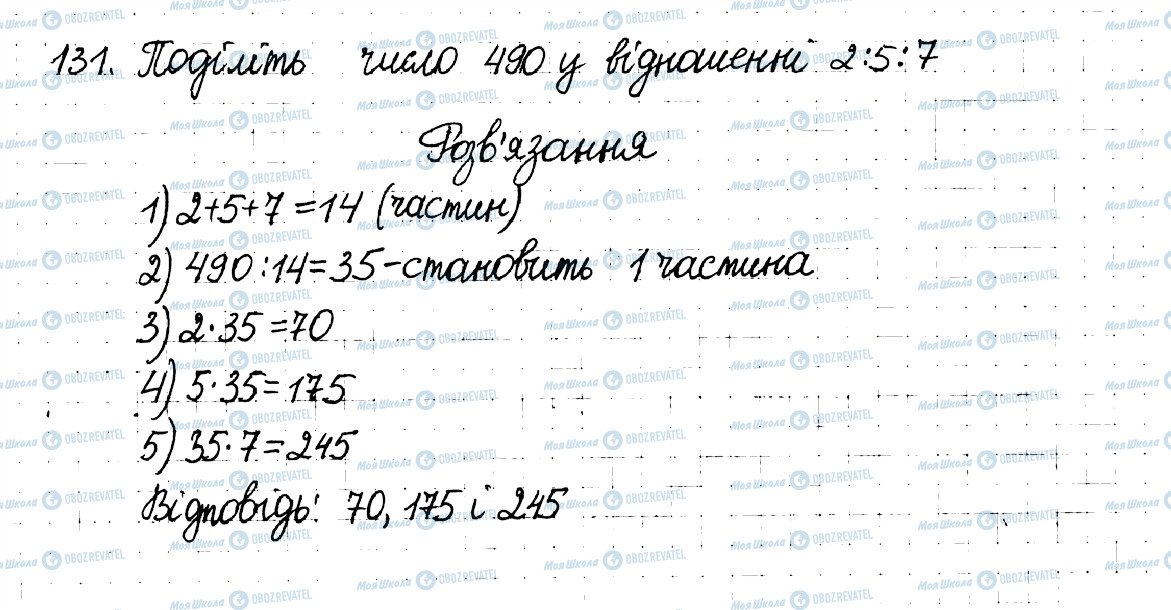 131. Поділіть число 490 у відношенні 2:5:7
Розв'язання
1) 2+5+7=14 (частин)
2) 490:14=35-становить 1 частина
3) 2·35=70
4) 5·35=175
5) 35·7=245
Відповідь: 70, 175 і 245